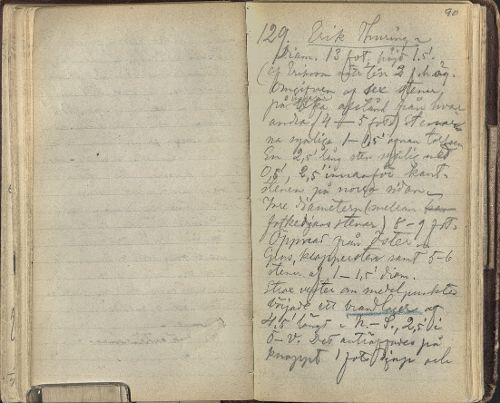 90
129. Erik Thuring
Diam. 13 fot, höjd 1.5'.
(af Erikson efter ten 2 f. hög.
Omgifven af sex stenar
på lika afstånd från hvar
andra (4 – 5 fot) stenar
na synliga 1 – 1,5' ofvan
En 2,5' lång sten synlig med
0,5', 2,5' innanför kant-
stenen på norra sidan
Inre diametern (mellan
fotkedjans stenar) 8 – 9 fot.
Öppnad från öster
Grus, klappersten samt 5-6
stenar af 1 – 1,5' diam.
Strax vester om medelpunkten
började ett brandlager af
4,5' längd i N. – S., 2,5' i
Ö – V. Det anträffades på
knappt 1 fots djup och